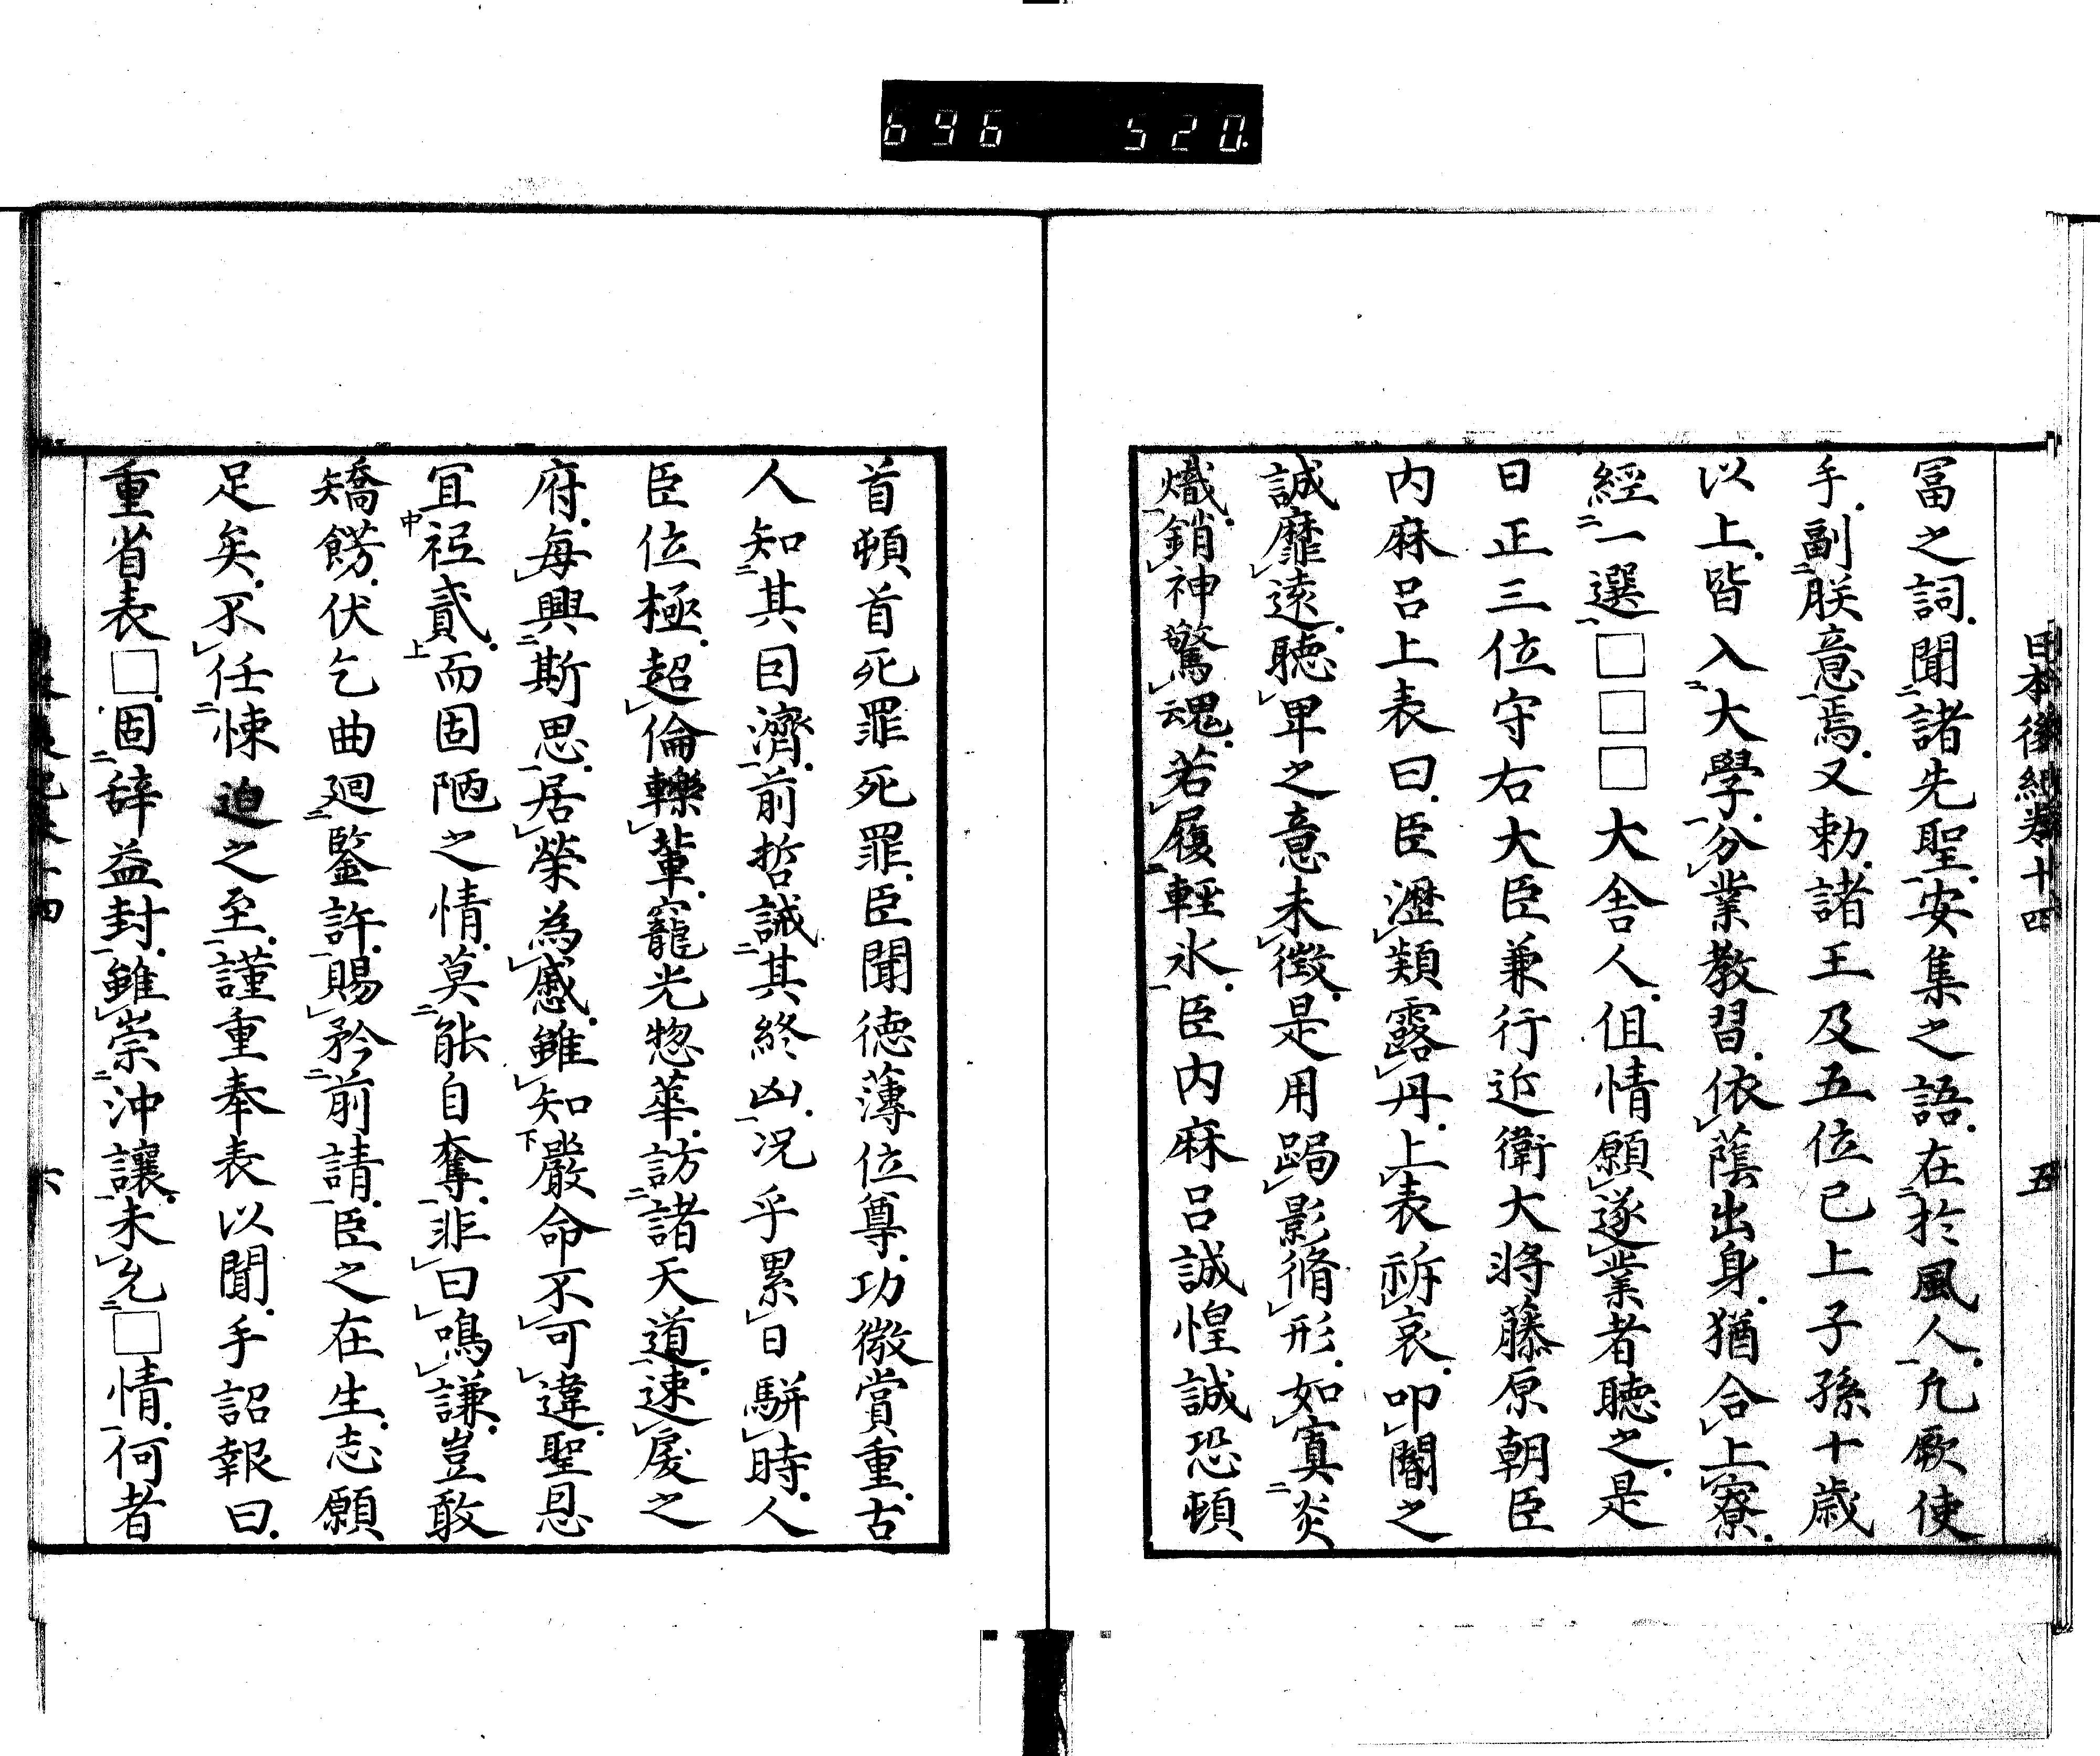 696 520.
日本後紀卷十四 五
冨之詞聞諸先聖安集之語在於風人凢厥使
乎副朕意焉又勅諸王及五位已上子孫十歳
以上皆入大學分業教習依蔭出身猶合上寮
經一選□□□大舎人但情願遂業者聴之是
日正三位守右大臣兼行近衛大将藤原朝臣
内麻呂上表曰臣瀝頬露丹上表訴哀叩閽之
誠靡遠聴卑之意未徴是用跼影脩形如寘炎
熾銷神驚魂若履輕氷臣内麻呂誠惶誠恐頓
首頓首死罪死罪臣聞徳薄位尊功微賞重古
人知其目濟前哲誡其終凶况乎累日駢時人
臣位極超倫轢輩寵光惣華訪諸天道速戻之
府每興斯思居榮為慼雖知嚴命不可違聖恩
冝祗貳而固陋之情莫能自奪非曰鳴謙豈敢
矯餝伏乞曲廻鑒許賜矜前請臣之在生志願
足矣不任悚迫之至謹重奉表以聞手詔報曰
重省表□固辞益封雖崇沖讓未允□情何者
六